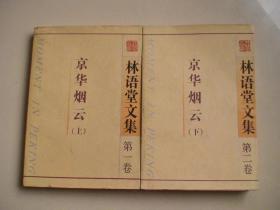 林语堂文集
第一卷
京华烟云
(上)
MOMENT IN PEKING
林语堂文集
第二卷
京华烟云
(下)
MOMENT IN PEKING